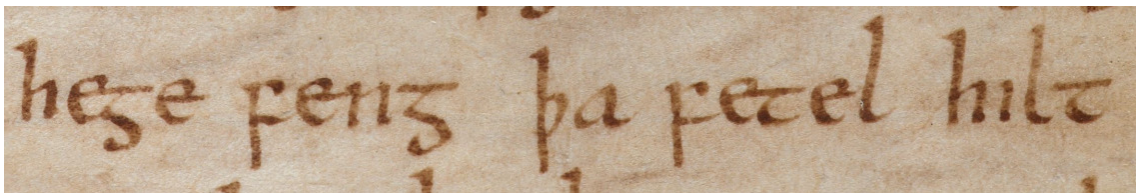 hege feng þa fetel hilt